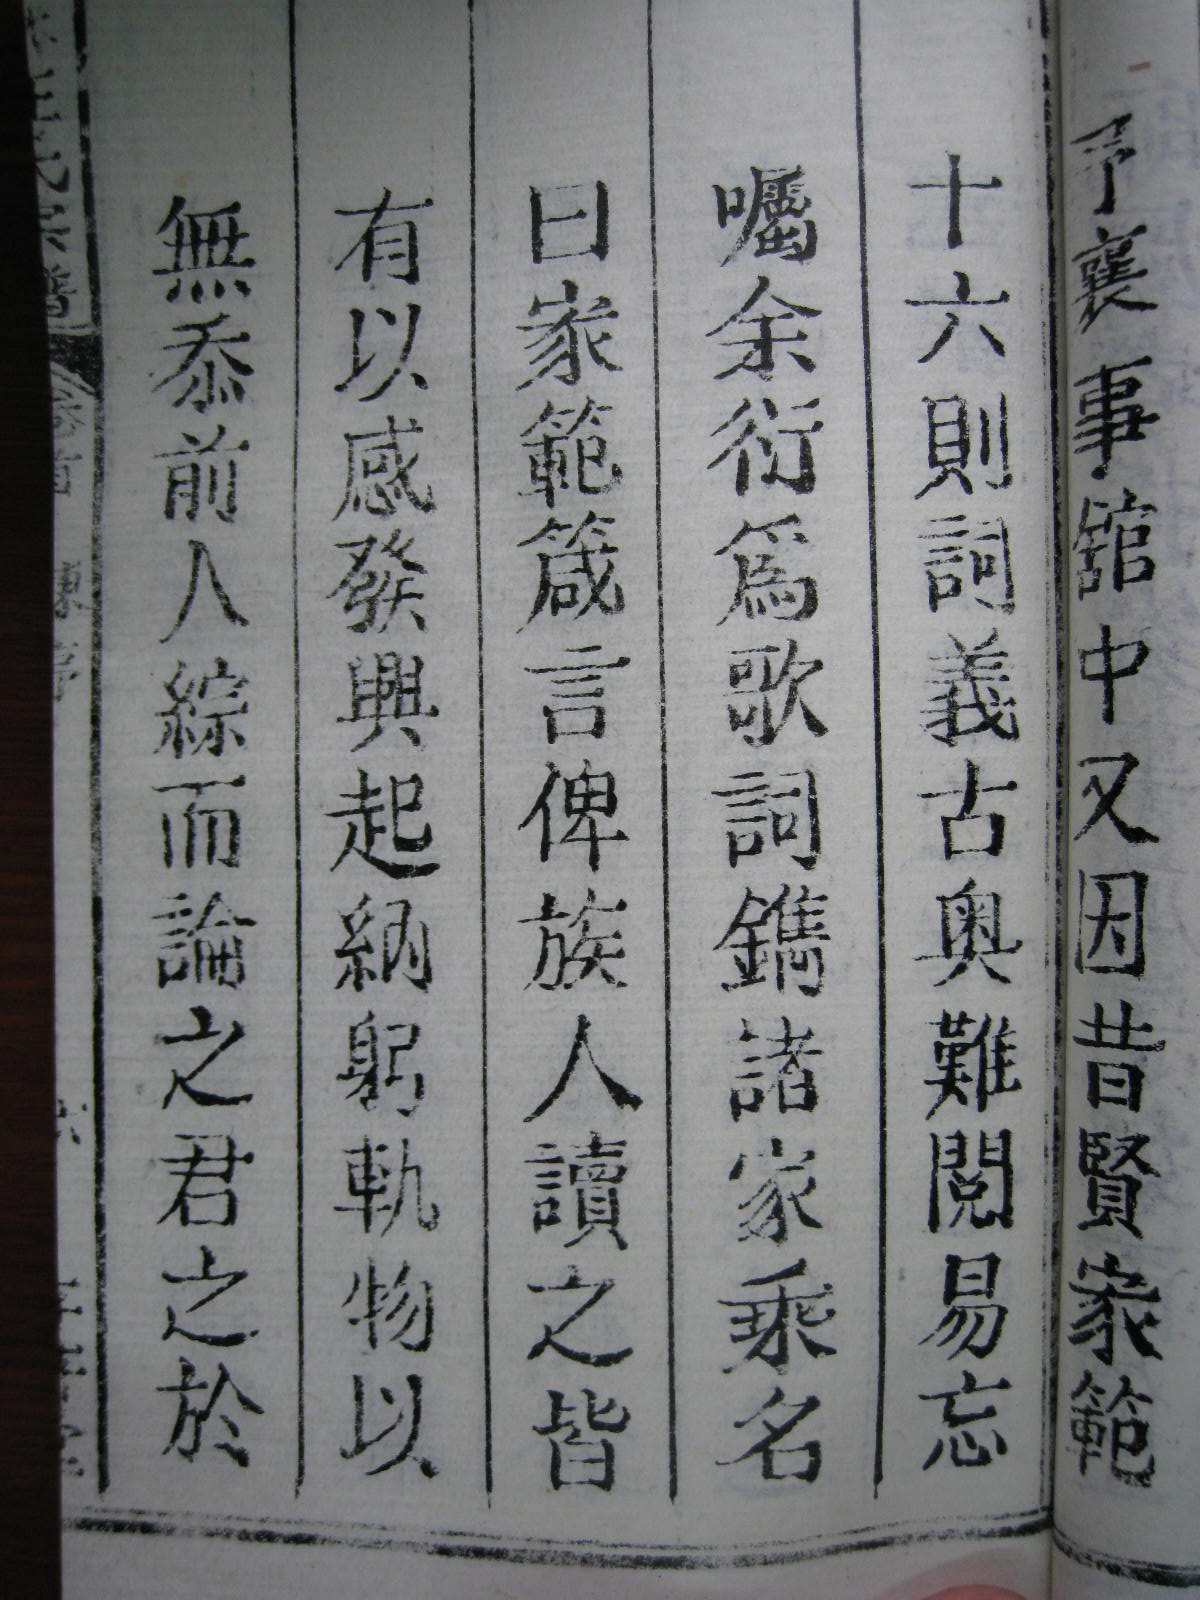 予襄事舘中又因昔賢家範
十六則詞義古奥難閱易忘
囑余衍爲歌詞鐫諸家乘名
曰家範箴言俾族人讀之皆
有以感發興起納躬軌物以
無忝前人綜而論之君之於